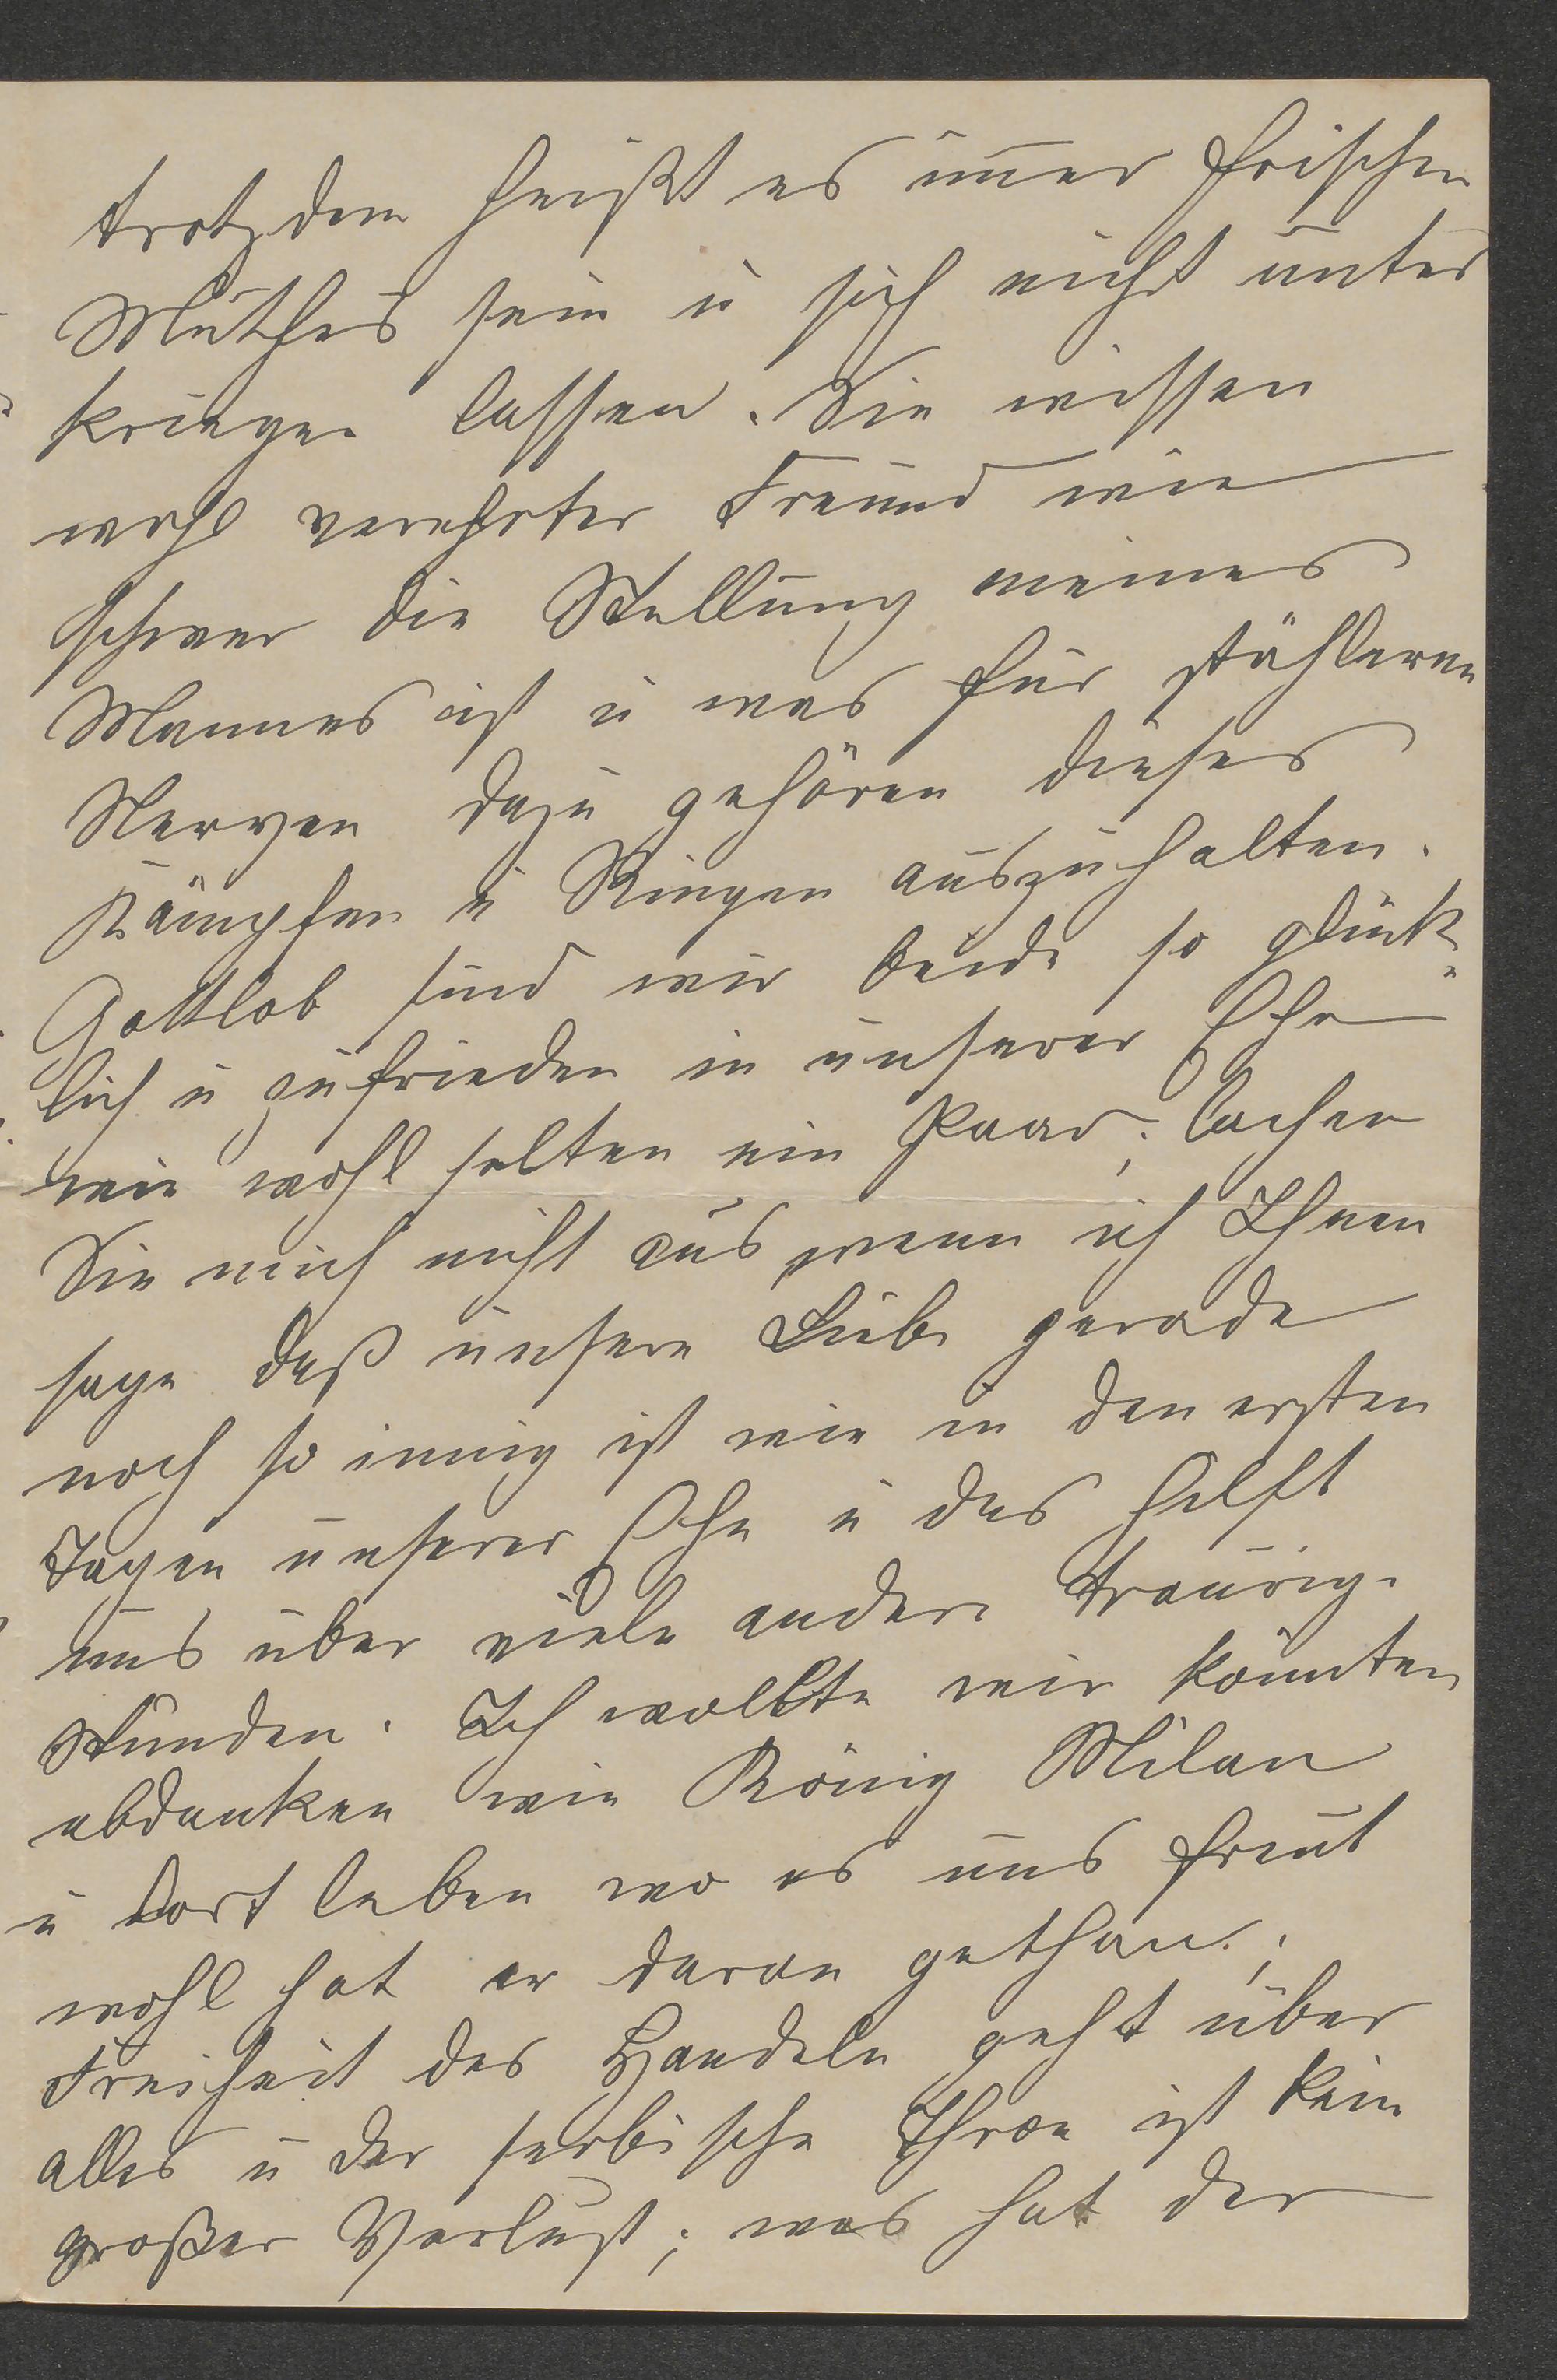 trotzdem heißt es im̄er frischen
Muthes sein u sich nicht unter
kriegen lassen. Sie wissen
wohl verehrter Freund wie
schwer die Stellung meines
Mannes ist u was für stählerne
Nerven dazu gehören dieses
Kämpfen u Ringen auszuhalten.
Gottlob sind wir beide so glück-
lich u zufrieden in unserer Ehe
wie wohl selten ein Paar; lachen
Sie mich nicht aus wenn ich Ihnen
sage daß unsere Liebe gerade
noch so innig ist wie in den ersten
Tagen unserer Ehe u das hilft
uns über viele andere traurige
Stunden. Ich wollte wir könnten
abdanken wie König Milan
u dort leben wo es uns freut
wohl hat er daran gethan;
Freiheit des Handeln geht über
alles u der serbische Thron ist kein
großer Verlust; was hat der